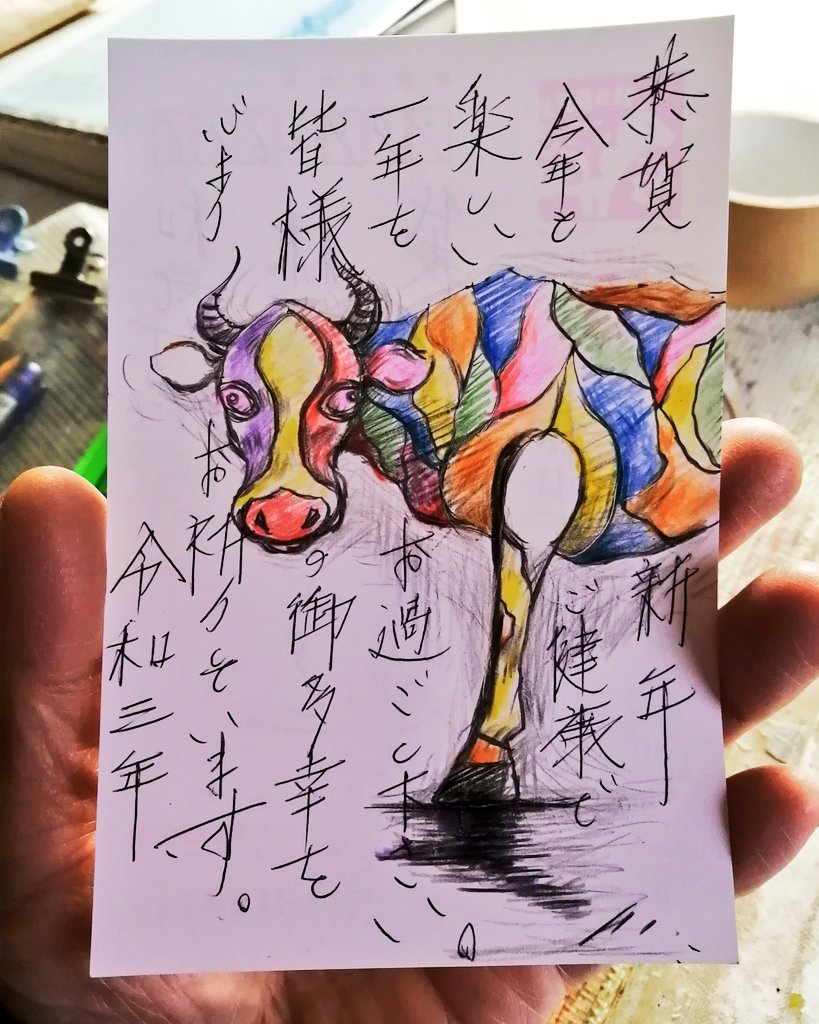 恭賀新年
今年も
ご健康で
楽しい
一年を
お過ごし下さい。
皆様の御多幸を
心より
お祈りしています。
令和三年